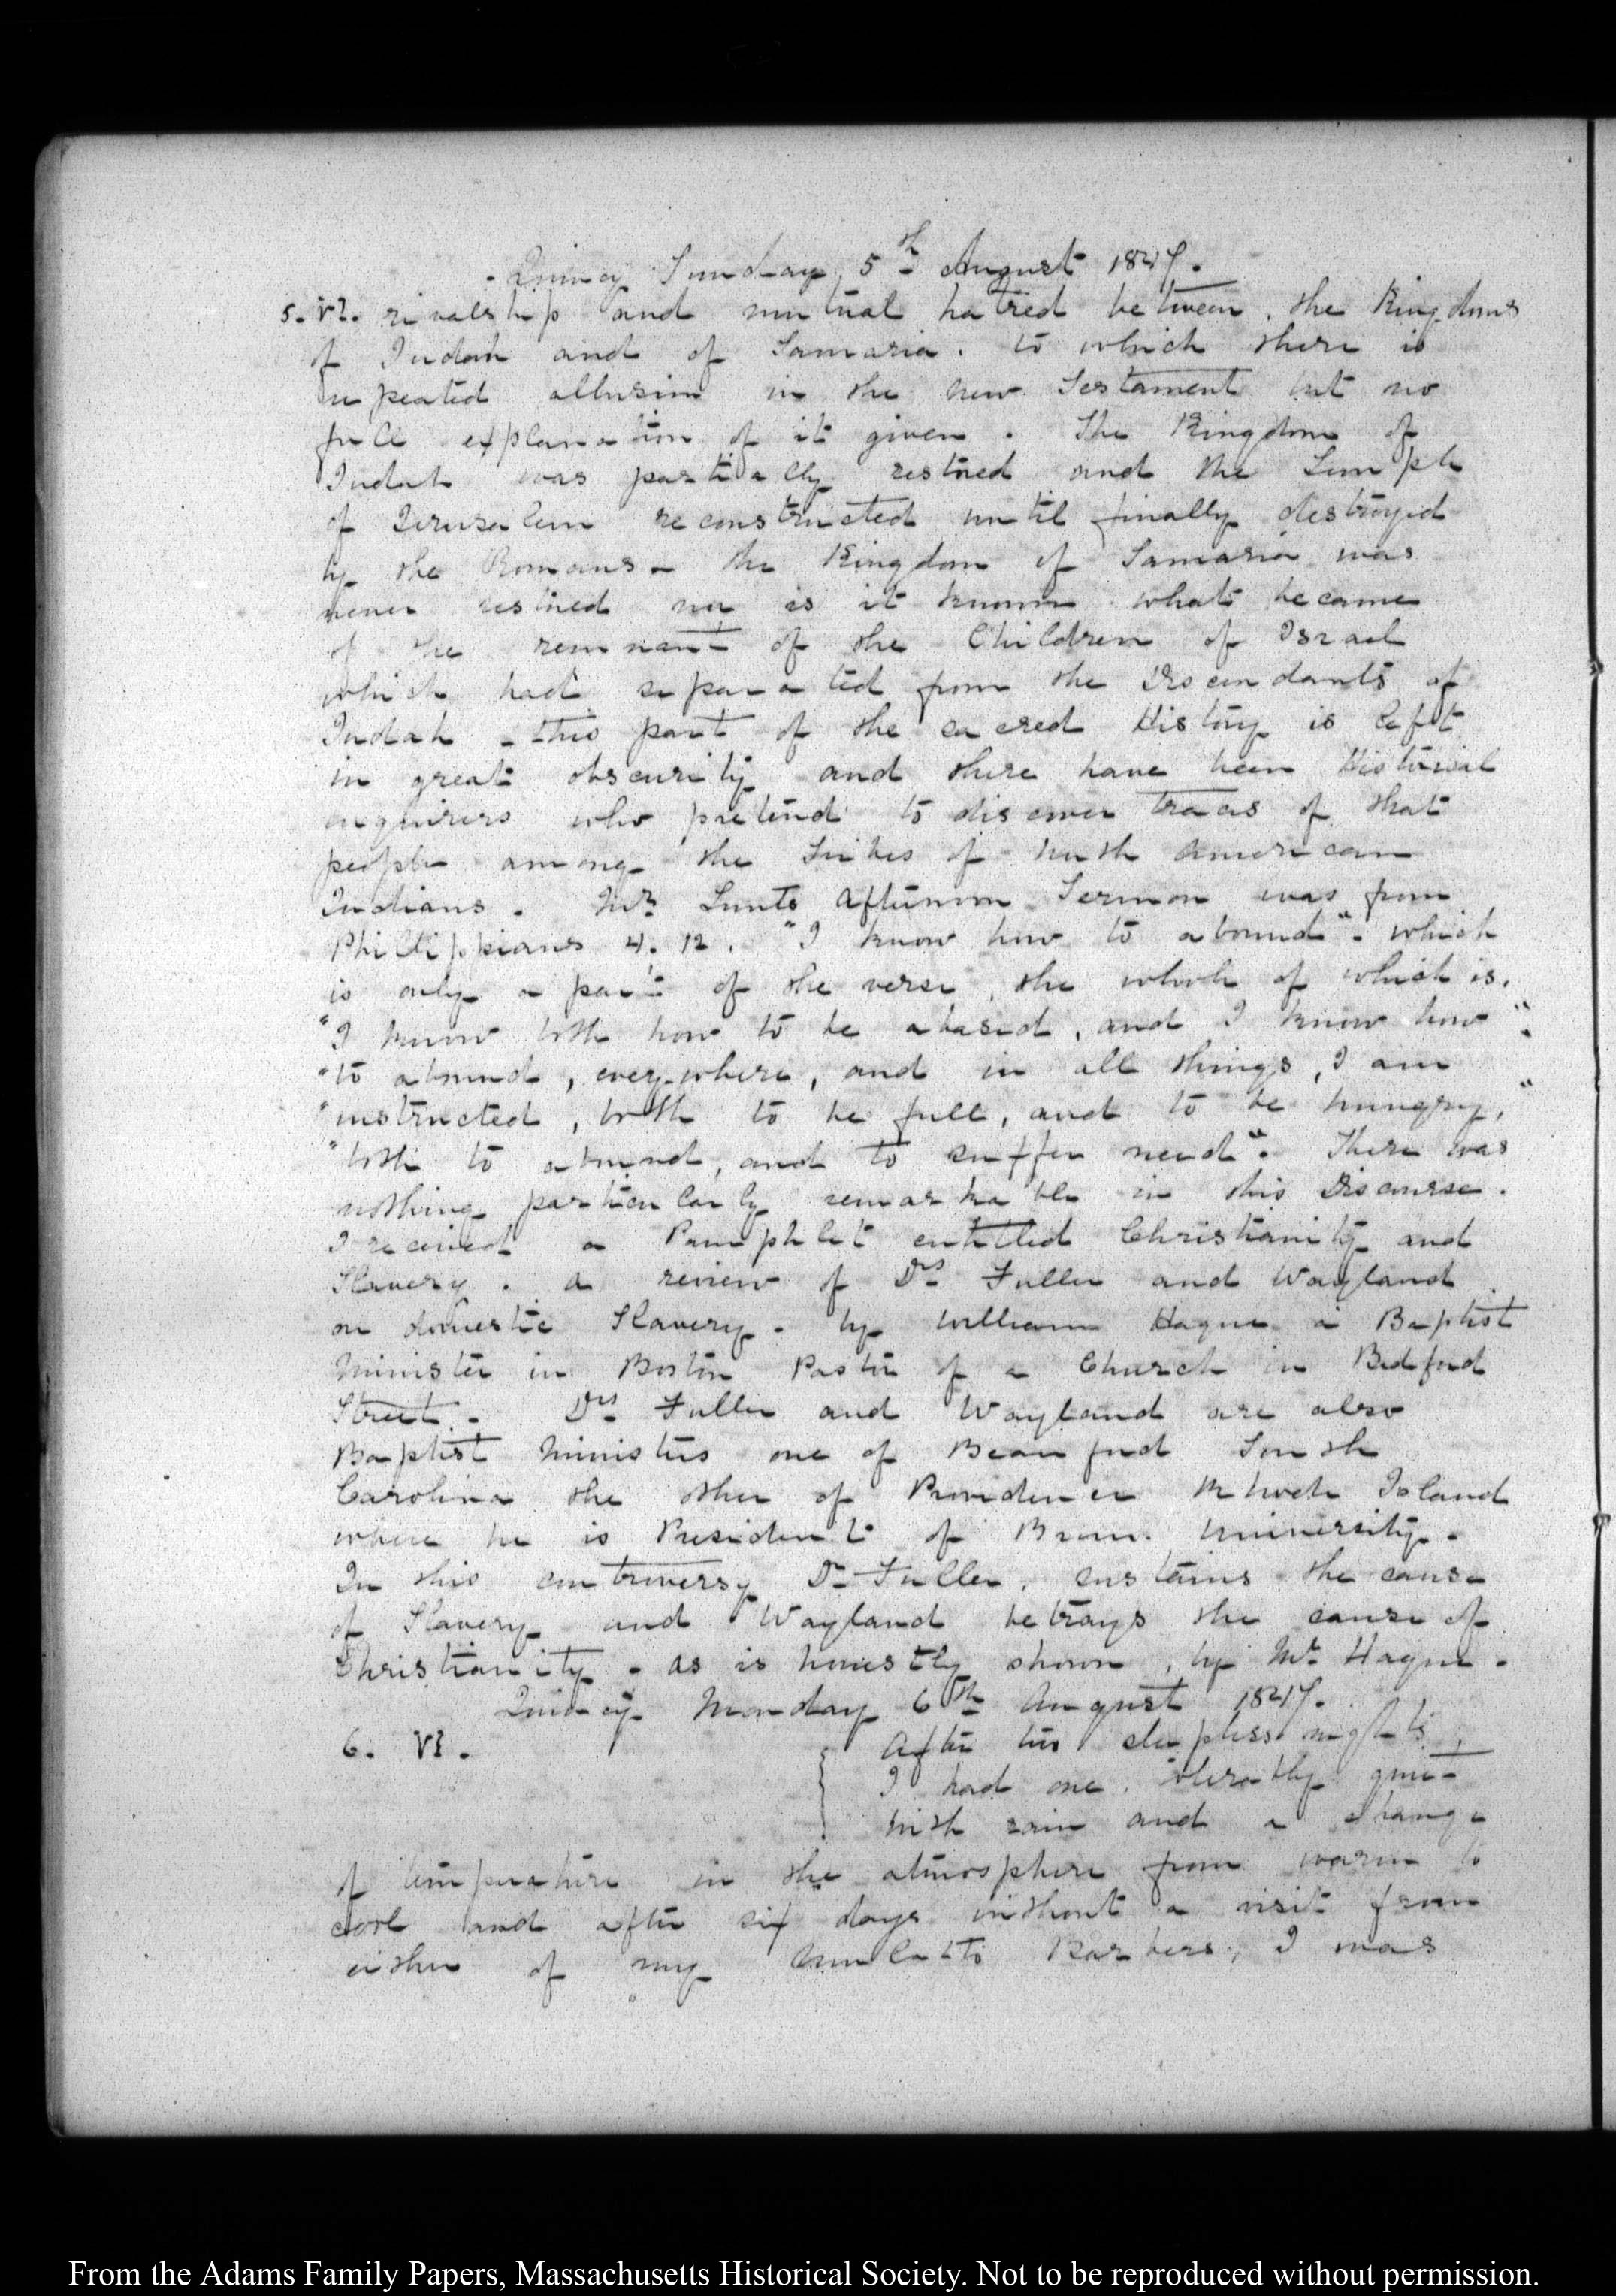 Quincy Sunday 5th August 1847.
5. VI. rivalship and mutual hatred between the Kingdoms
of Judah and of Samaria. to which there is
repeated allusion in the new Testament but no
full explanation of it given. The Kingdom of
Judah was partially restored and the Temple
of Jerusalem reconstructed until finally destroyed
by the Romans - the Kingdom of Samaria was
never restored nor is it known what became
of the remnant of the Children of Israel
which had separated from the Descendants of
Judah - this part of the sacred History is left
in great obscurity and there have been Historical
enquirers who pretend to discover traces of that
people among the tribes of North American
Indians. Mr Lunt's afternoon Sermon was from
Philippians 4. 12. "I know how to abound". which
is only a part of the verse, the whole of which is.
"I know both how to be abased, and I know how"
"to abound, every-where, and in all things, I am
"instructed, both to be full, and to be hungry,"
"both to abound, and to suffer need". There was
nothing particularly remarkable in this Discourse.
I received a Pamphlet entitled Christianity and
Slavery. a review of Drs Fuller and Wayland
on domestic Slavery - by William Hague a Baptist
Minister in Boston Pastor of a Church in Bedford
Street. - Drs Fuller and Wayland are also
Baptist Ministers one of Beaufort South
Carolina the other of Providence Rhode Island
where he is President of Brown University -
In this controversy Dr Fuller, sustains the cause
of Slavery and Wayland betrays the cause of
Christianity - as is honestly shown, by Mr Hague -
Quincy Monday 6th August 1847.
6. VI. After two sleepless nights,
I had one tolerably quiet
with rain and a change
of temperature in the atmosphere from warm to
cool and after six days without a visit from
either of my mulatto Barbers, I was
From the Adams Family Papers, Massachusetts Historical Society. Not to be reproduced without permission.